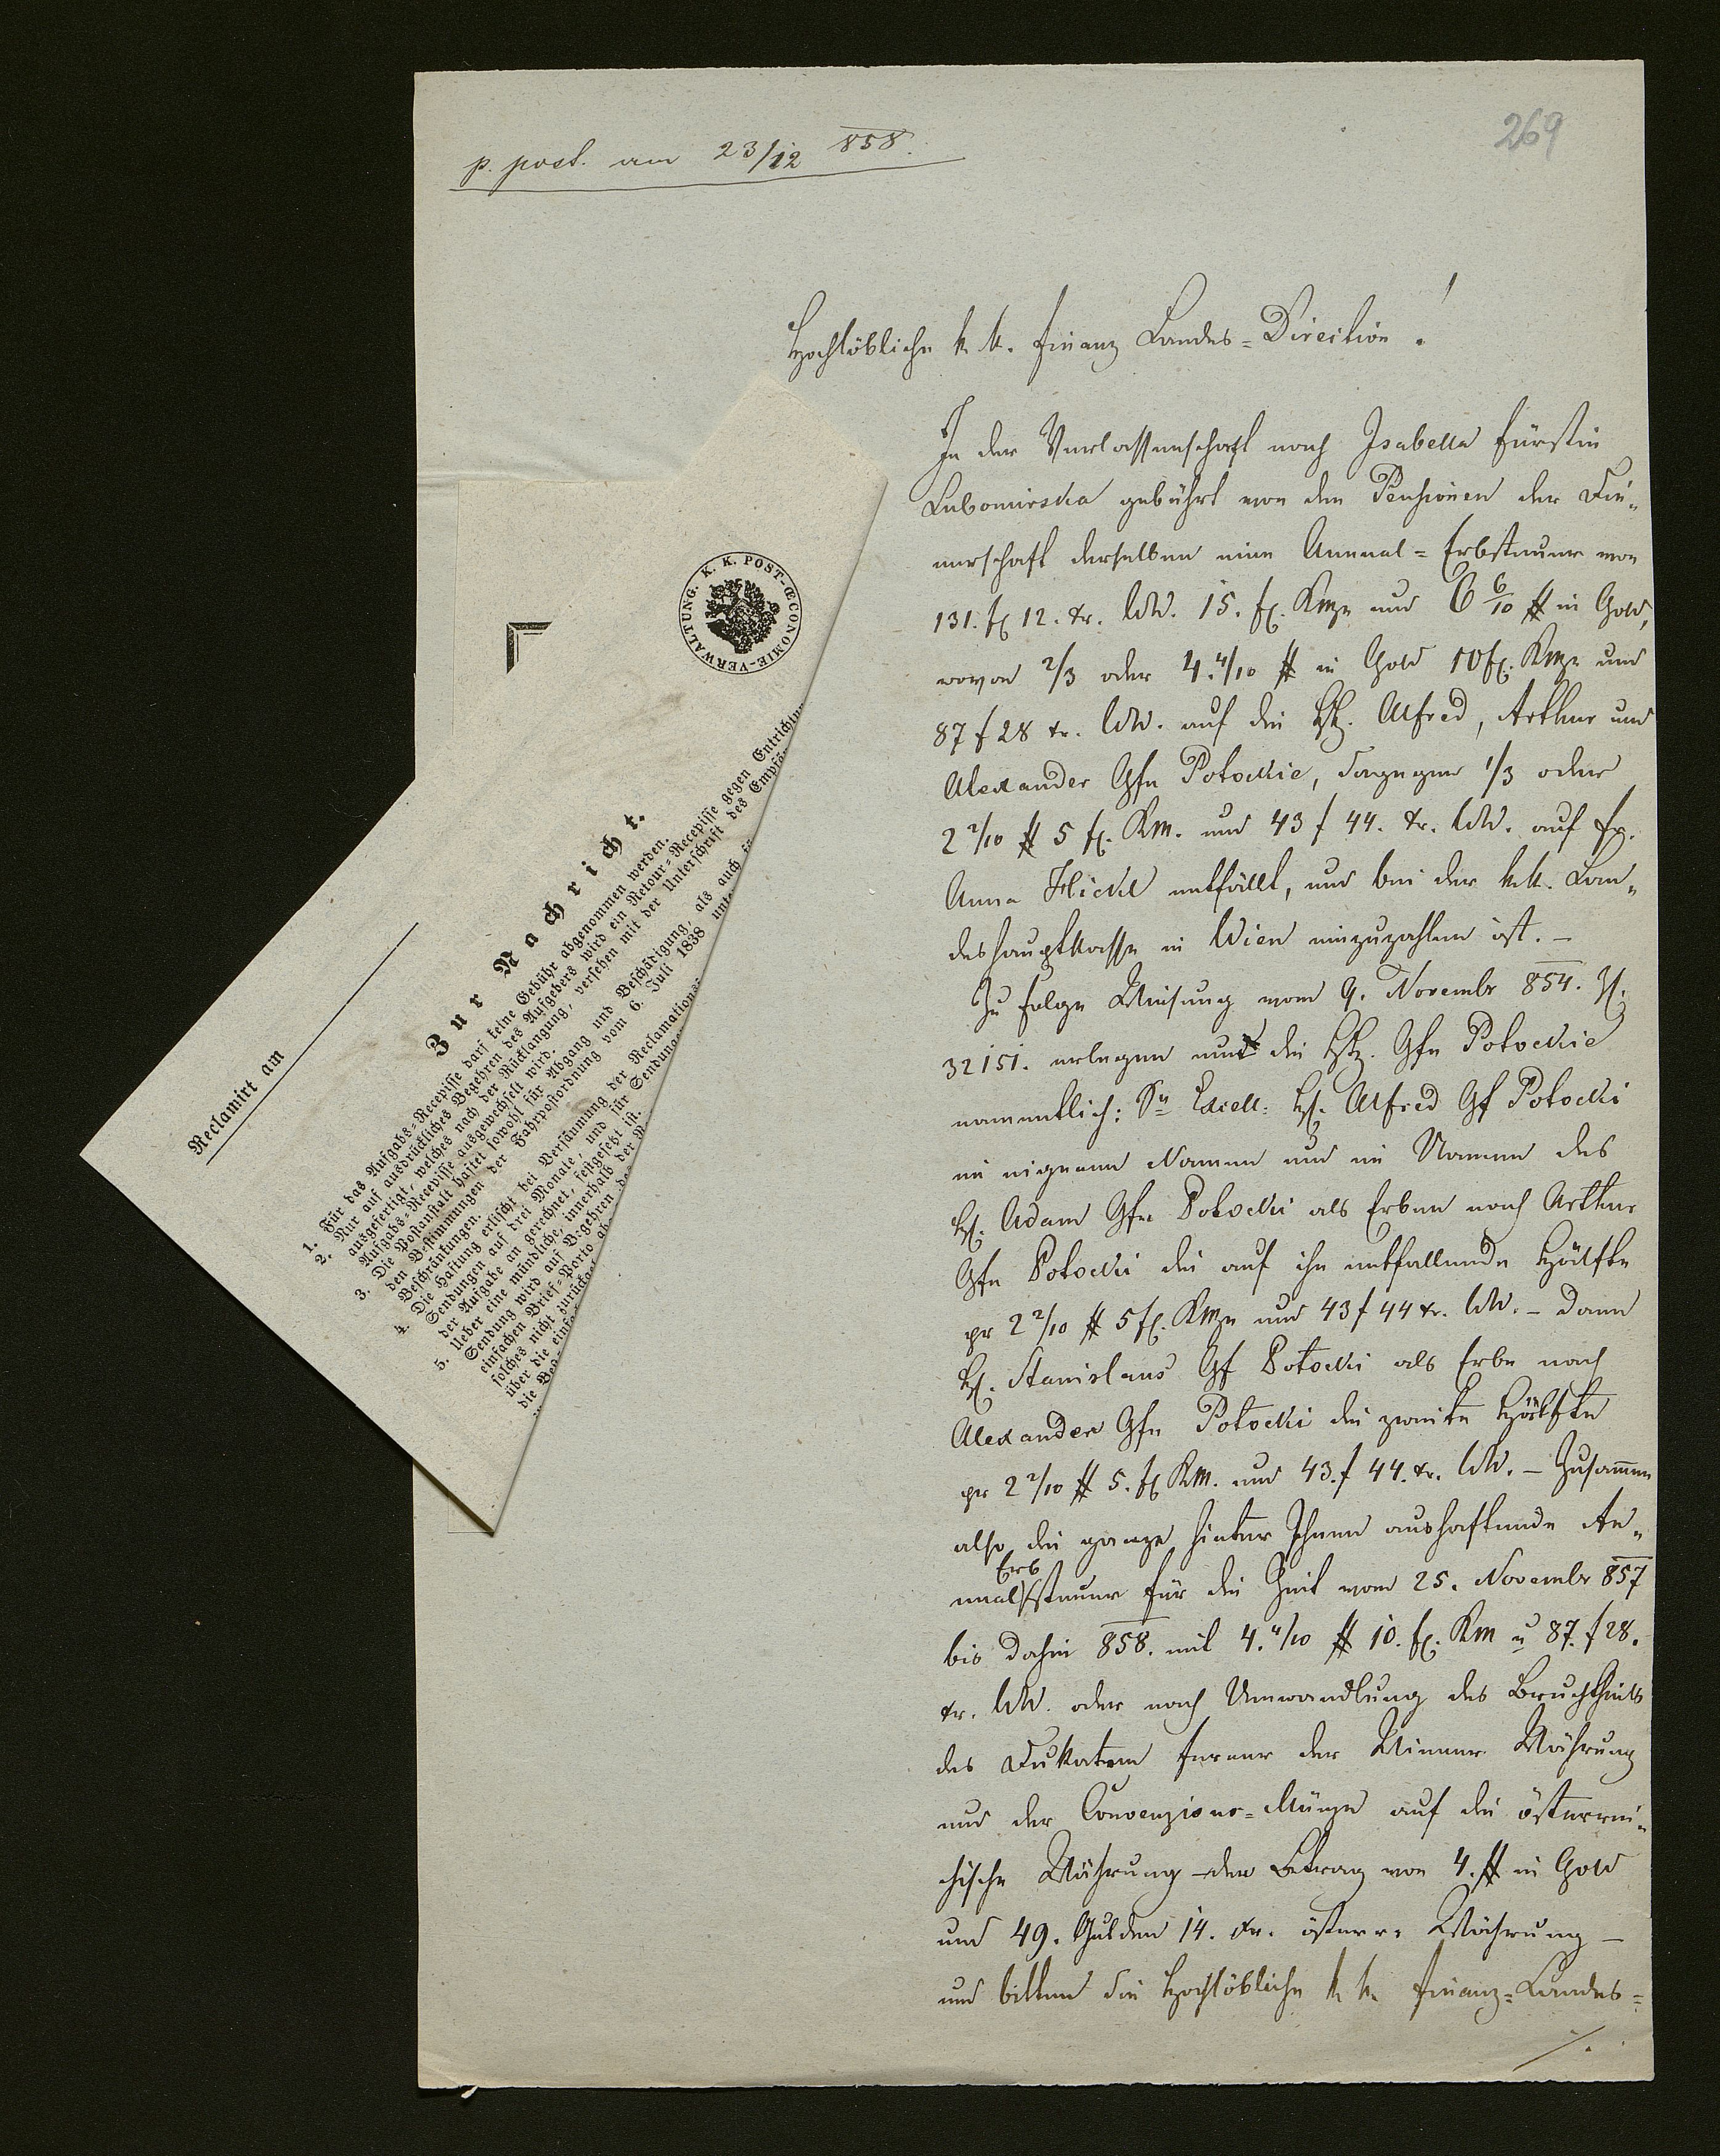 p. post. am 23/12 858.
269
Hochlöbliche k. k. Finanz Landes=Direction!
In der Verlassenschaft nach Isabella Fürstin
Lubomirska gebührt von den Pensionen der Die¬
nerschaft derselben eine Annual=Erbsteuer von
131. f 12. xr. WW. 15. f. Kmze und 6 6/10 # in Gold,
wovon 2/3 oder 4.4/10 # in Gold 10 f. Kmze und
87 f 28 xr. WW. auf die HH. Alfred, Arthur und
Alexander Gfn Potockie, dagegen 1/3 oder
2 2/10 # 5 f. Km. und 43 f 44. xr. WW. auf Fr.
Anna entfällt, und bei der k. k. Lan¬
deshauptkasse in Wien einzuzahlen ist. –
Zu Folge Weisung vom 9. Novembr 854. Z.
32151. erlegen nun die HH. Gfn Potockie
namentlich: Se Excell. H. Alfred Gf Potocki
im eigenen Namen und im Namen des
H. Adam Gfn Potocki als Erben nach Arthur
Gfn Potocki die auf ihn entfallende Hälfte
pr 2 2/10 # 5 f. Kmze und 43 f 44 xr. WW. – dann
H. Stanislaus Gf Potocki als Erbe nach
Alexander Gfn Potocki die zweite Hälfte
pr 2 2/10 # 5. f Km. und 43. f 44. xr. WW. – Zusammen
also die ganze hinter Ihnen aushaftende An¬
nual Erbsteuer für die Zeit vom 25. Novembr 857
bis dahin 858. mit 4.4/10 # 10. f. Km u 87. f 28.
xr. WW. oder nach Umwandlung des Bruchtheils
des Dukaten ferner der Wiener Währung
und der Convenzions=Münze auf die österrei¬
chische Währung – den Betrag von 4. # in Gold
und 49. Gulden 14. xr. österr. Währung –
und bitten die Hochlöbliche k. k. Finanz=Landes=
/.
K. K. POST-ŒCONOMIE-VERWALTUNG.
Reclamirt am
Zur Nachricht.
1. Für das Aufgabs=Recepisse darf keine Gebühr abgenommen werden.
2. Nur auf ausdrückliches Begehren des Aufgebers wird ein Retour=Recepisse gegen Entrichtun
ausgefertigt, welches nach der Rücklangung, versehen mit der Unterschrift des Empfä
Aufgabs=Recepisse ausgewechselt wird.
3. Die Postanstalt haftet sowohl für Abgang und Beschädigung, als auch
den Bestimmungen der Fahrpostordnung vom 6. Juli 1838 unt
Beschränkungen.
4. Die Haftung erlischt bei Versäumung der Reclamations
Sendungen auf drei Monate, und für Sendung
der Aufgabe an gerechnet, festgesetzt ist.
5. Ueber eine mündliche, innerhalb der
Sendung wird auf Begehren de
einfachen Brief=Porto
solches nicht zurück
über die einf
die